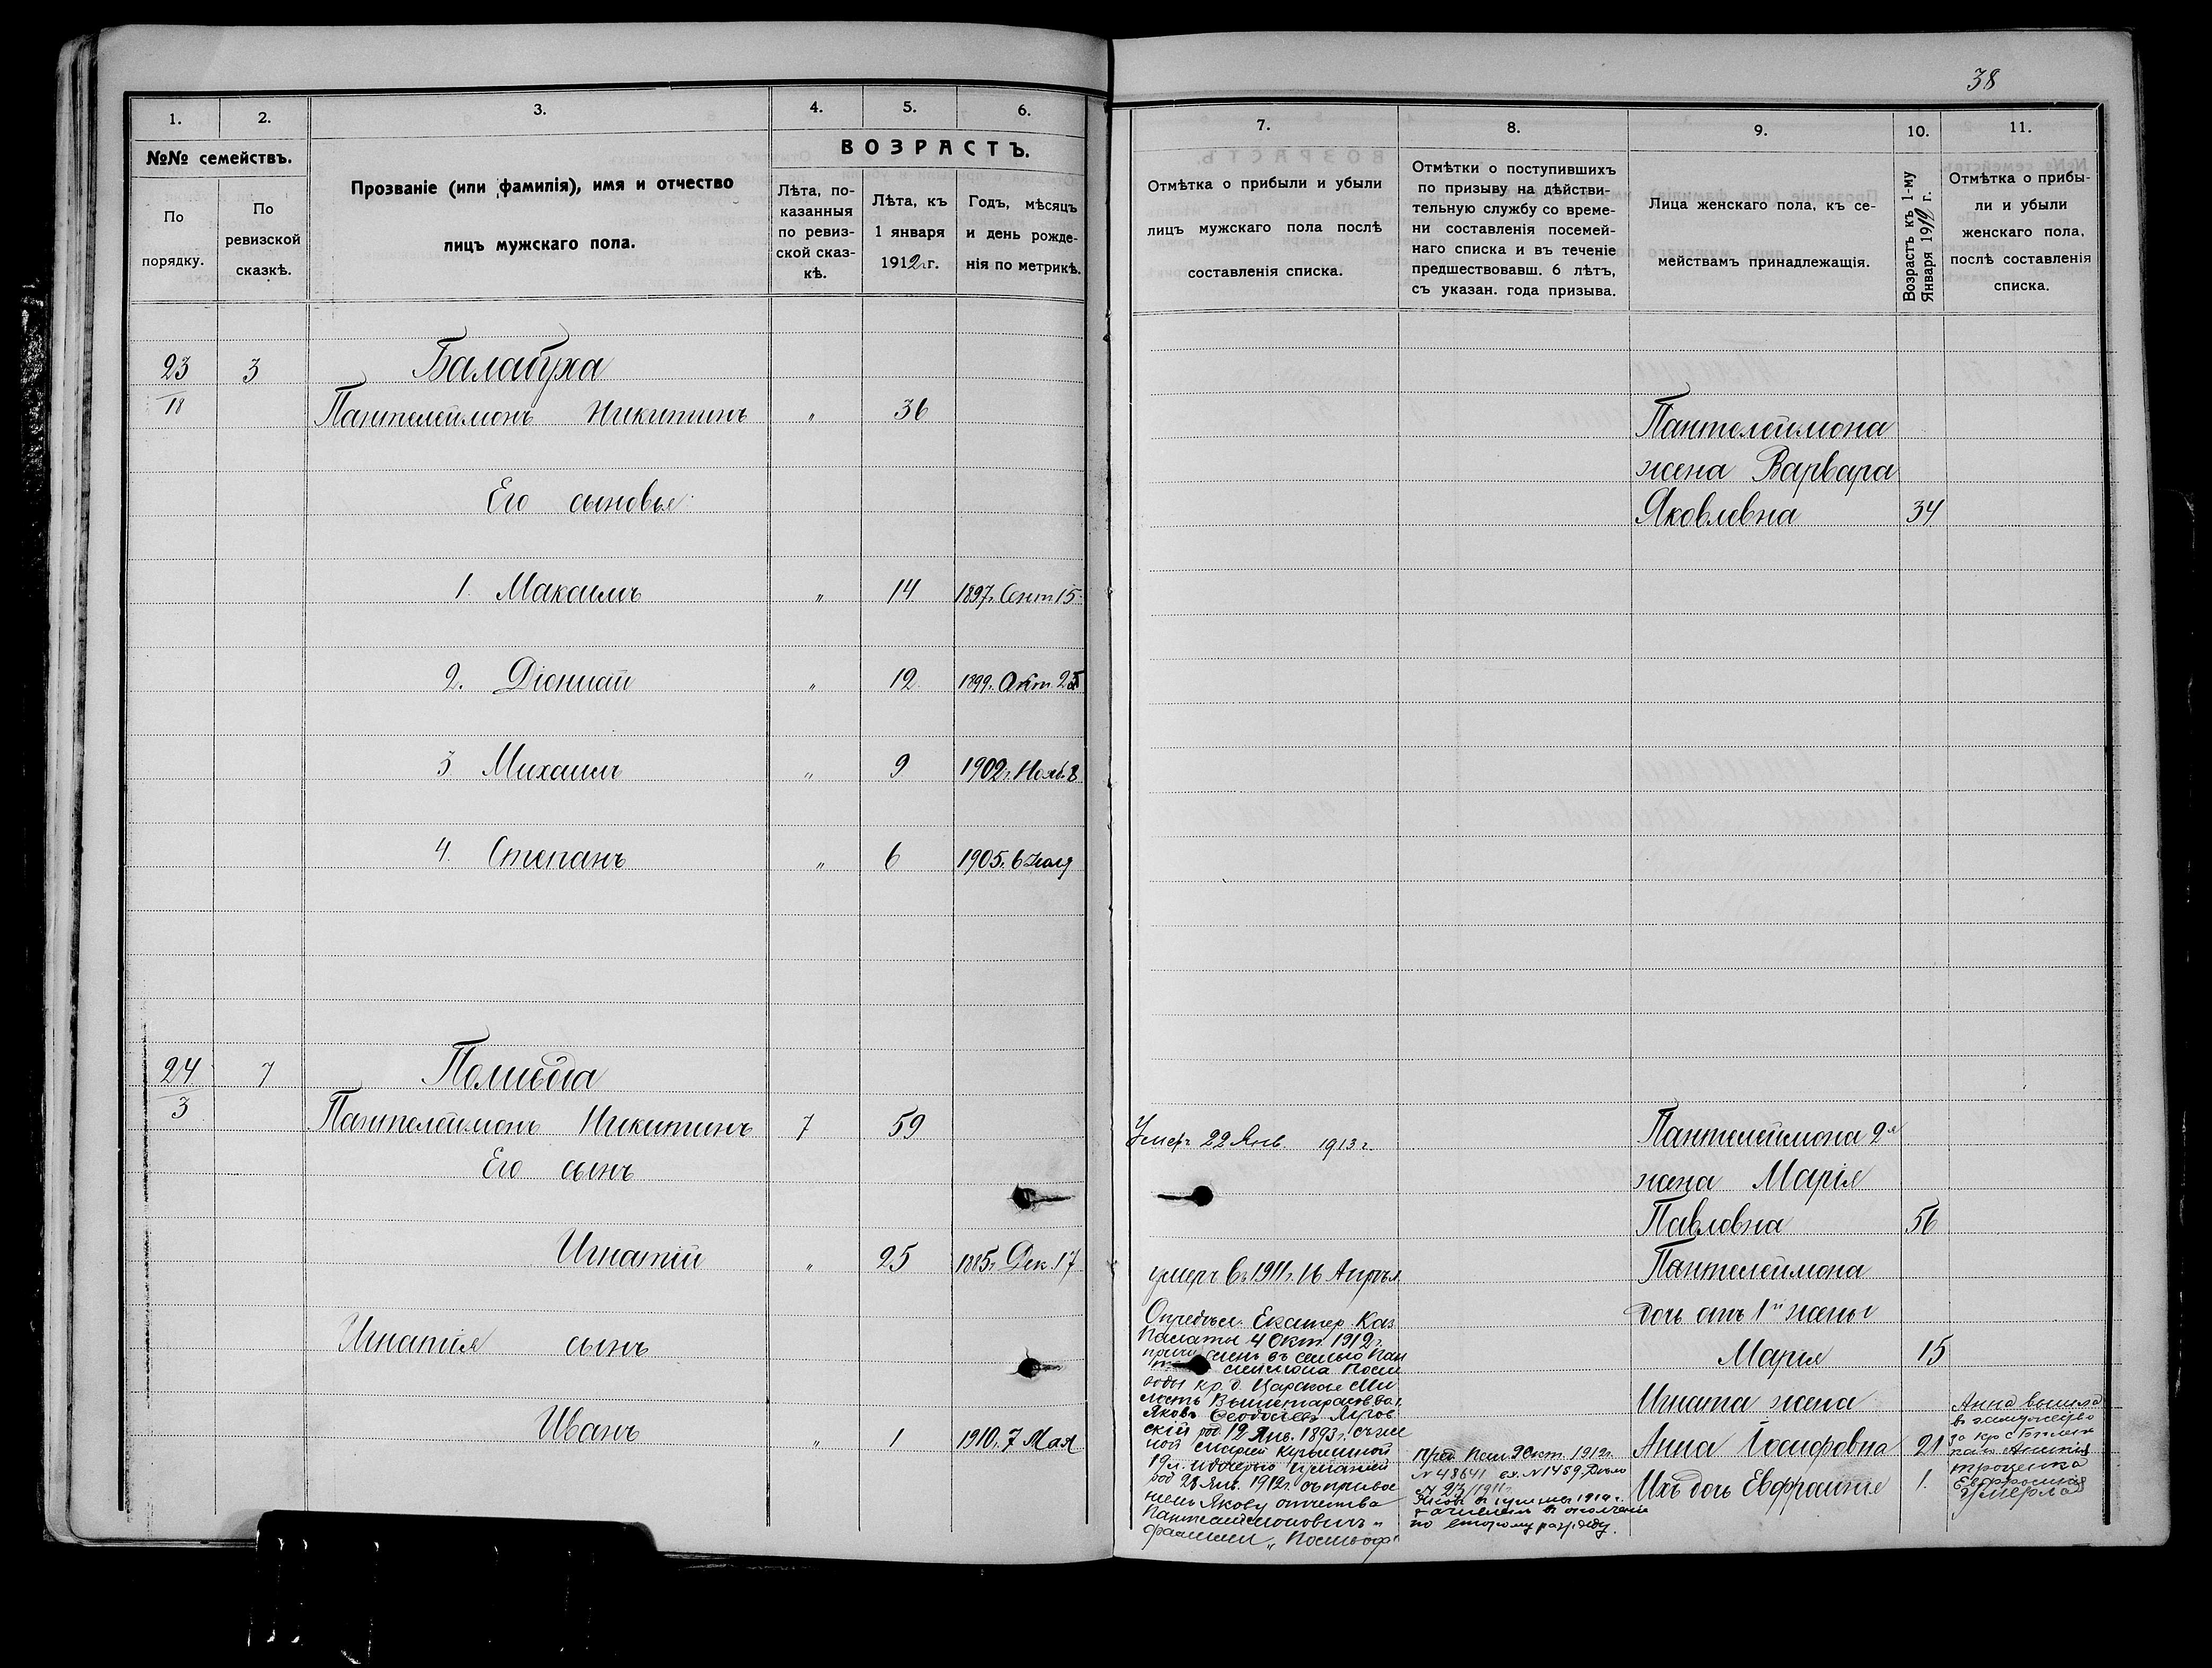 38
1.
2.
3.
4.
5.
6.
№№ семействъ.
По порядку.
По ревизской сказкѣ.
Прозваніе (или фамилія), имя и отчество
лицъ мужскаго пола.
ВОЗРАСТЪ.
Лѣта, по-
казанныя
по ревиз-
ской сказ-
кѣ.
Лѣта, къ
1 января
1912 г.
Годъ, мѣсяцъ
и день рожде-
нія по метрикѣ.
23 3 Балабуха
18 Пантелеймонъ Никитинъ " 36
Его сыновья:
1. Максимъ " 14 1897 г. Сент 15
2. Діонисій " 12 1899 г. Окт. 25
3 Михаилъ " 9 1902 г. Нояб. 8
4. Степанъ " 6 1905 г. 6
24 7
3 Пантелеймонъ Никитинъ 7 59
Его сынъ
Игнатій " 25 1885 г. Дек. 17
Игнатія сынъ
Иванъ " 1 1910 г. 7 Мая
7.
8.
9.
10.
11.
Отмѣтка о прибыли и убыли
лицъ мужскаго пола послѣ
составленія списка.
Отмѣтки о поступившихъ
по призыву на дѣйстви-
тельную службу со време-
ни составленія посемей-
наго списка и въ теченіе
предшествовавш. 6 лѣтъ,
съ указан. года призыва.
Лица женскаго пола, къ се-
мействамъ принадлежащія.
Возрастъ къ 1-му
Января 1912 г.
Отмѣтка о прибы-
ли и убыли
женскаго пола,
послѣ составленія
списка.
Пантелеймона
жена Варвара
Яковлевна 34
Умеръ 22 Янв. 1913 г.
Пантелеймона 2я
жена Марія
Павловна 56
умеръ въ 1911 г. 16 Апрѣля
Пантелеймона
дочь отъ 1й жены
Марія 15
Игната жена
Анна Іосифовна 21
Ихъ дочь Евфросинія 1.
Опредѣл. Екатер. Каз
Палаты 4 Окт. 1912 г.
въ семью Пан
кр. д. Царская Ми
лость Вышетарасовс.
Яковъ Феодосіевъ
скій род. 12 Янв. 1893 г. съ же
ной Маріей Кузьминой
19 л. и дочерью
род 28 Янв. 1912 г. съ присвое
ніемъ Якову отчества
Пантелеймоновичъ и
фамиліи
Пред. Пал 9 Окт. 1912 г.
№ 48641 вх. № 1459. Дѣло
№ 23/1911 г.
1914 г.
зачисленъ въ ополченіе
по второму разряду.
Анна вышла
в замужество
за кр с
Троценка
Евфросинія
Умерла